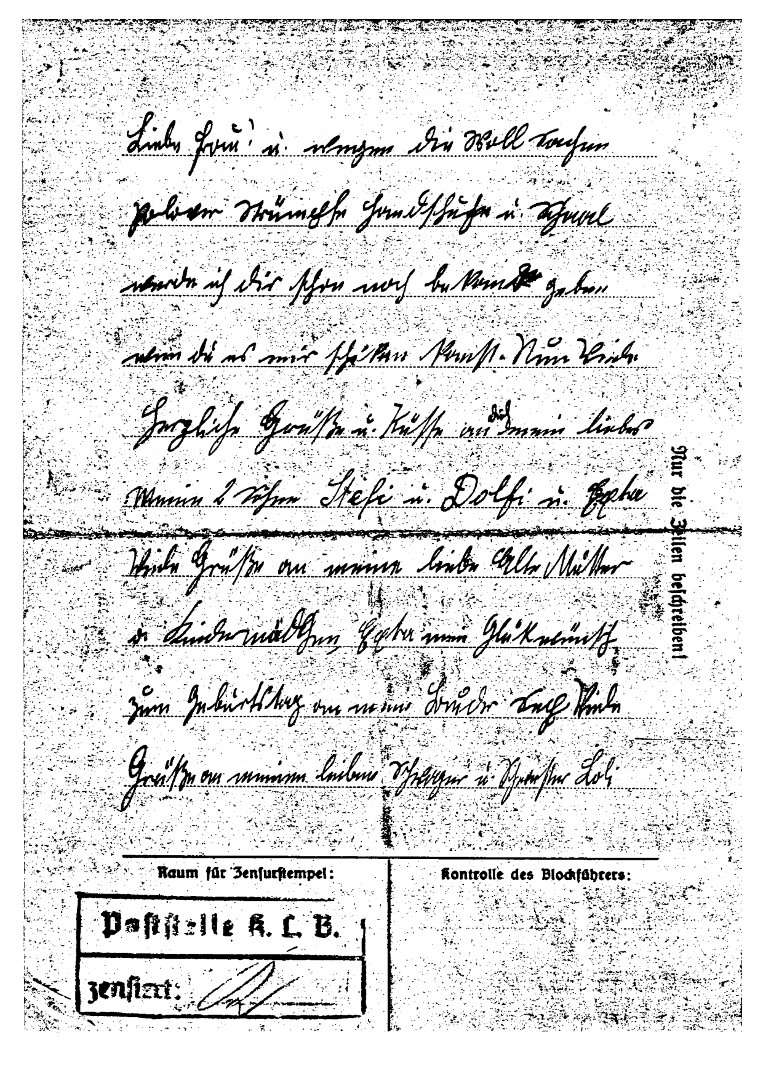 Liebe Frau! u. wegen die Woll Sachen
Polover Strümpfe Handschuhe u. Schaal
werde ich dir schon noch bekand geben
wen du es mir schüken kanst. Nun Viele
herzliche Grüße u. Küsse an dich mein liebes
Meine 2 Söhne Stefi u. Dolfi u.
Viele Grüße an meine liebe Alte Mutter
u. Kindermädchen, mein Glükwünsch
zum Geburtstag an mein Bruder Viele
Grüße an meinen leiben Schwager u. Schwester Loli
Nur die Zeilen beschreiben!
Raum für Zensurstempel:
Kontrolle des Blockführers:
Poststelle K. L. B.
zensiert: